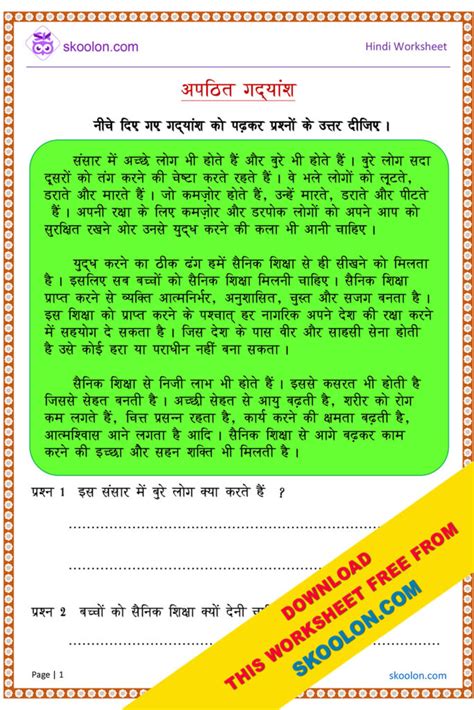 skoolon.com
Hindi Worksheet
अपठित गद्यांश
नीचे दिए गए गद्यांश को पढ़कर प्रश्नों के उत्तर दीजिए ।
संसार में अच्छे लोग भी होते हैं और बुरे भी होते हैं । बुरे लोग सदा
दूसरों को तंग करने की चेष्टा करते रहते हैं । वे भले लोगों को लूटते,
डराते और मारते हैं । जो कमज़ोर होते हैं, उन्हें मारते, डराते और पीटते
हैं । अपनी रक्षा के लिए कमज़ोर और डरपोक लोगों को अपने आप को
सुरक्षित रखने ओर उनसे युद्ध करने की कला भी आनी चाहिए ।
युद्ध करने का ठीक ढंग हमें सैनिक शिक्षा से ही सीखने को मिलता
है । इसलिए सब बच्चों को सैनिक शिक्षा मिलनी चाहिए । सैनिक शिक्षा
प्राप्त करने से व्यक्ति आत्मनिर्भर, अनुशासित, चुस्त और सजग बनता है ।
इस शिक्षा को प्राप्त करने के पश्चात् हर नागरिक अपने देश की रक्षा करने
में सहयोग दे सकता है । जिस देश के पास वीर और साहसी सेना होती
है उसे कोई हरा या पराधीन नहीं बना सकता ।
सैनिक शिक्षा से निजी लाभ भी होते हैं । इससे कसरत भी होती है
जिससे सेहत बनती है । अच्छी सेहत से आयु बढ़ती है, शरीर को रोग
कम लगते हैं, चित्त प्रसन्न रहता है, कार्य करने की क्षमता बढ़ती है,
आत्मविश्वास आने लगता है आदि । सैनिक शिक्षा से आगे बढ़कर काम
करने की इच्छा और सहन शक्ति भी मिलती है ।
प्रश्न 1 इस संसार में बुरे लोग क्या करते हैं ?
प्रश्न 2 बच्चों को सैनिक शिक्षा क्यों देनी
DOWNLOAD
THIS WORKSHEET FREE FROM
SKOOLON.COM
Page | 1
skoolon.com